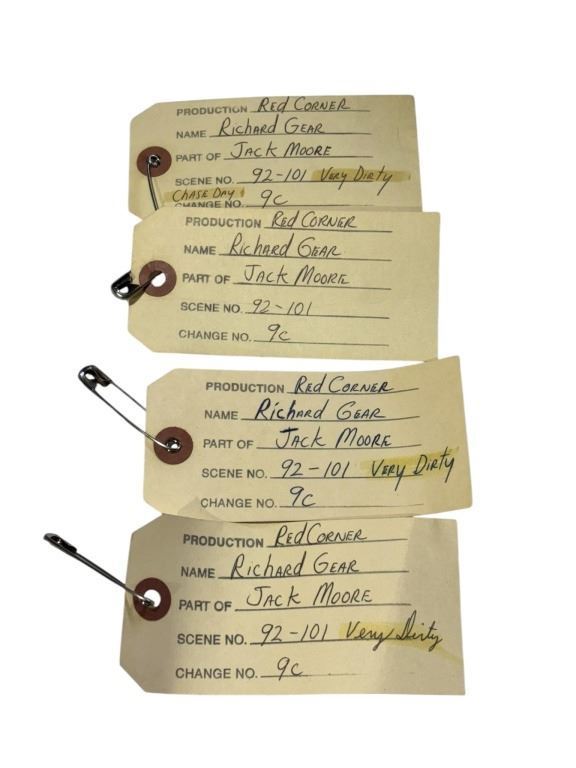 PRODUCTION Red Corner
NAME Richard Gear
PART OF Jack Moore
SCENE NO. 92-101 Very Dirty
Chase Day
CHANGE NO. 9c
PRODUCTION Red Corner
NAME Richard Gear
PART OF Jack Moore
SCENE NO. 92-101
CHANGE NO. 9c
PRODUCTION Red Corner
NAME Richard Gear
PART OF Jack Moore
SCENE NO. 92-101 Very Dirty
CHANGE NO. 9c
PRODUCTION Red Corner
NAME Richard Gear
PART OF Jack Moore
SCENE NO. 92-101 Very Dirty
CHANGE NO. 9c